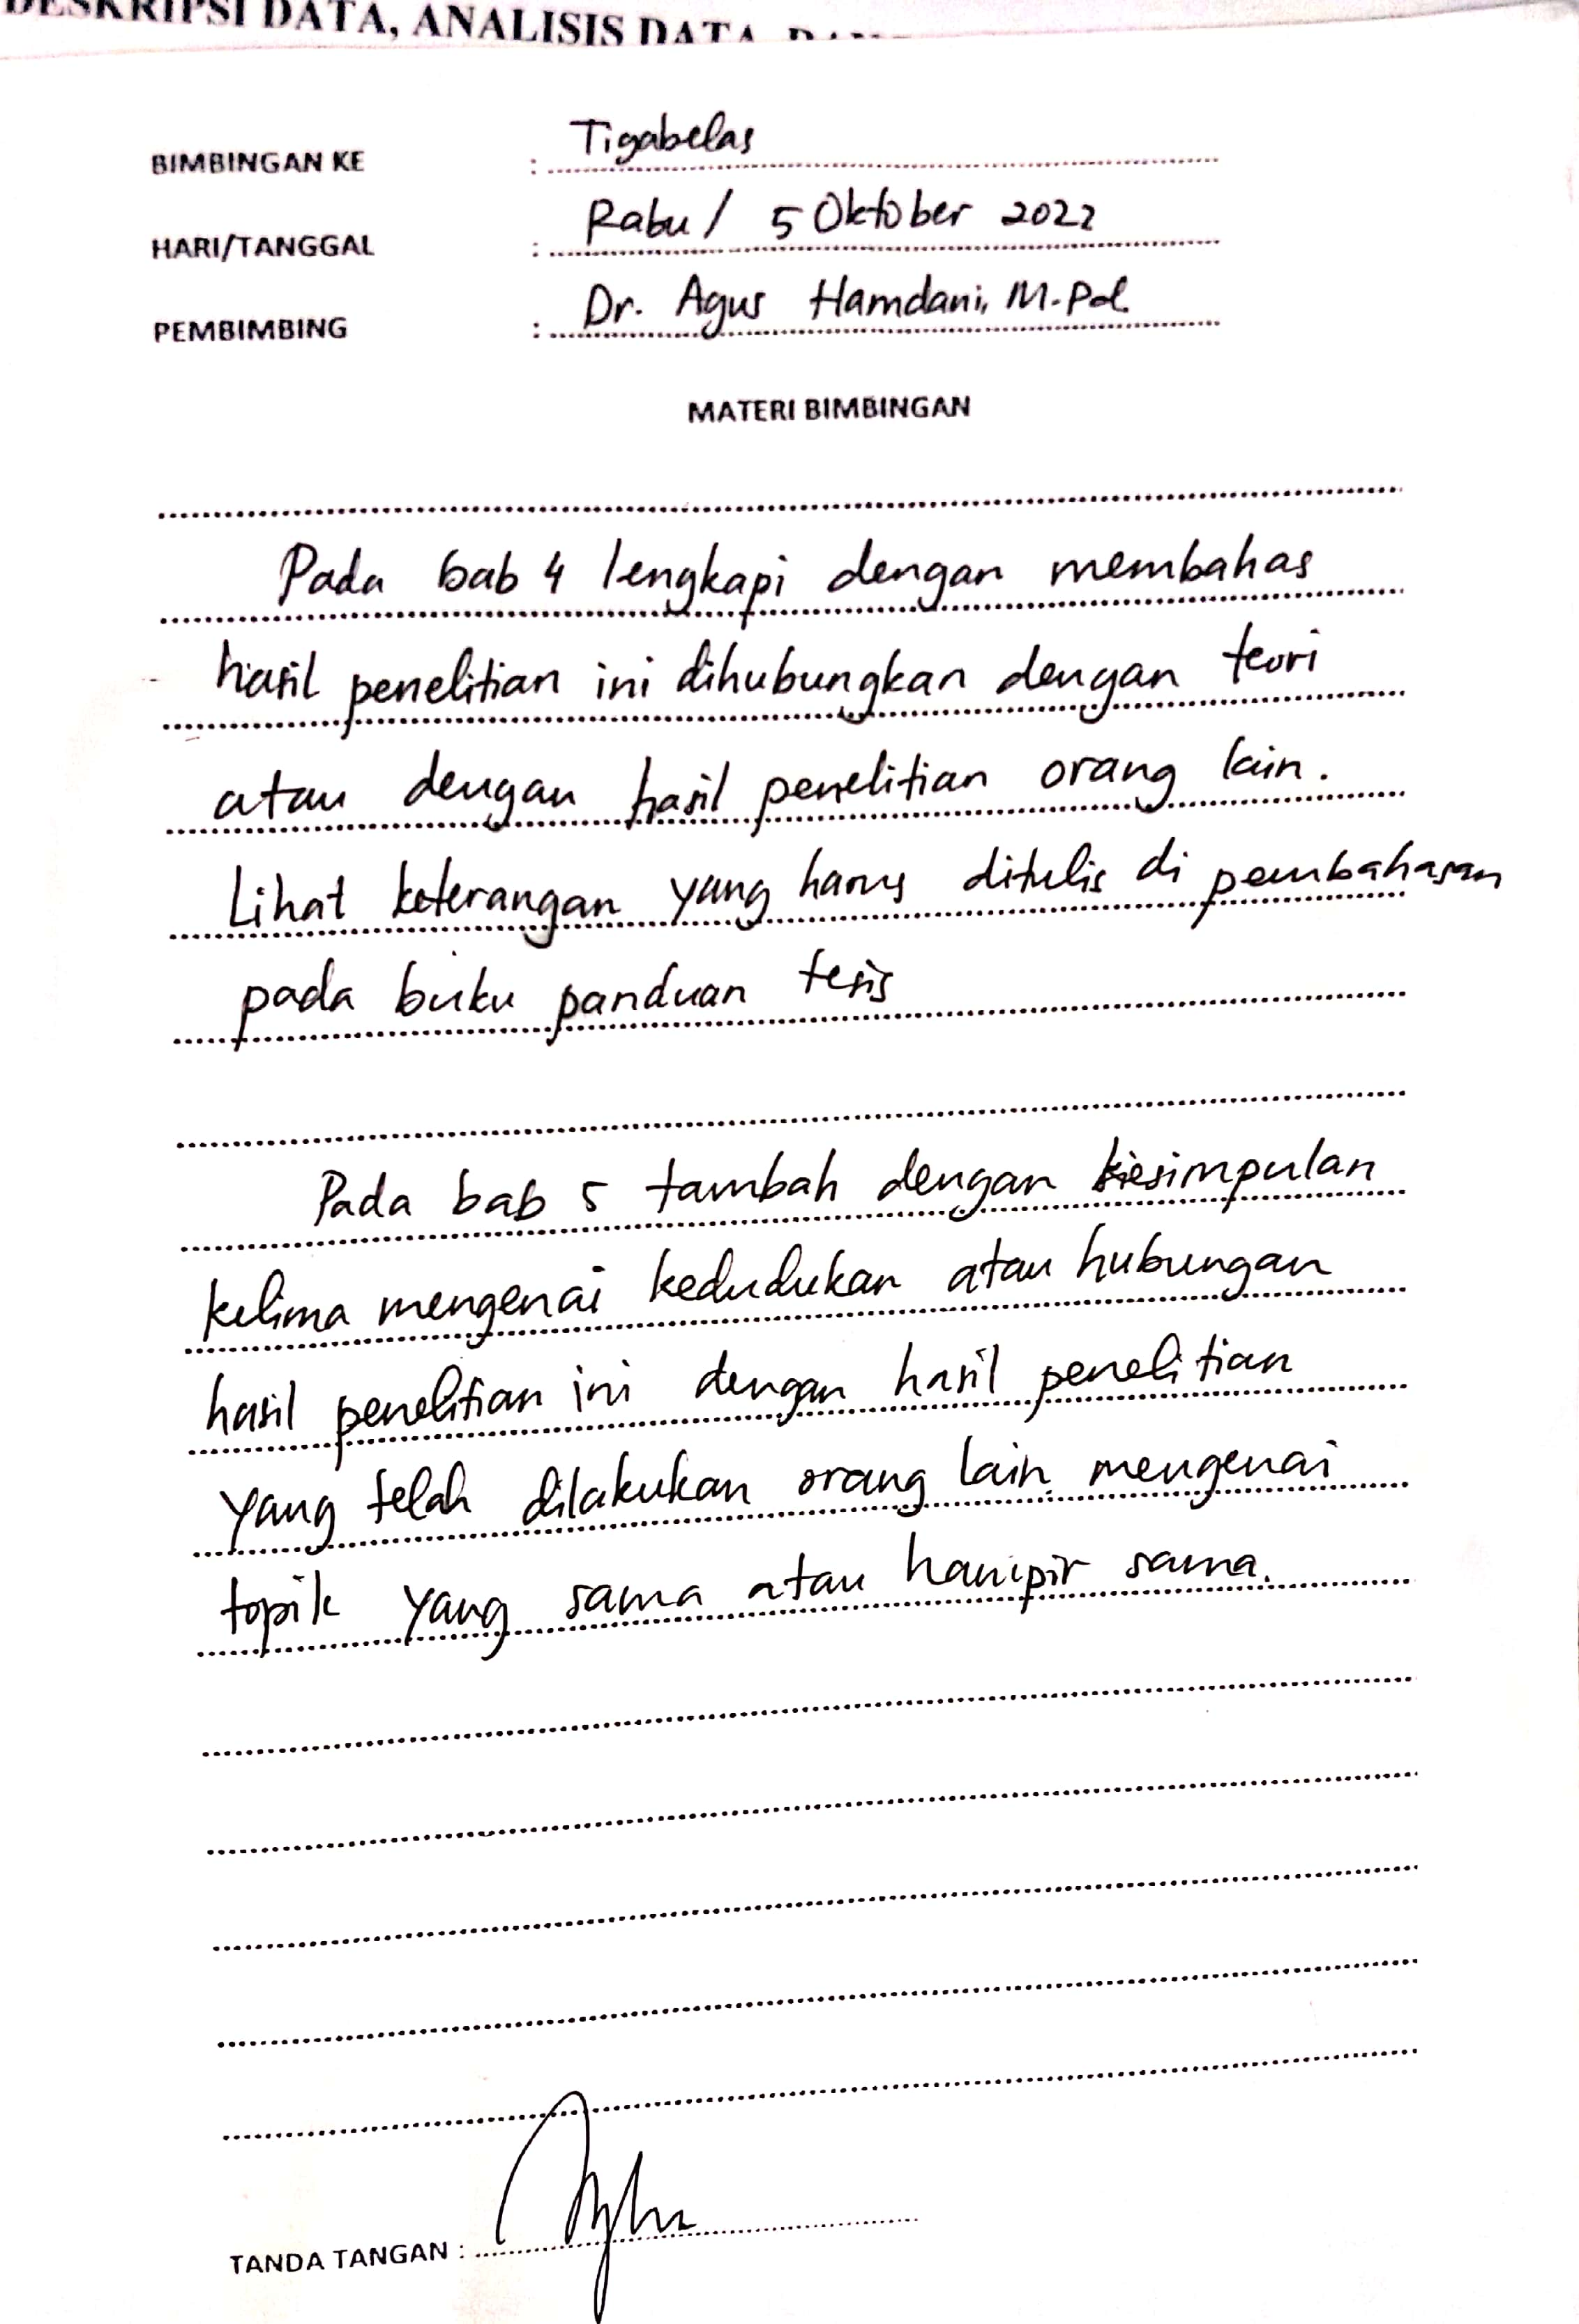 DESKRIPSI DATA, ANALISIS DATA,
BIMBINGAN KE : Tigabelas
HARI/TANGGAL : Rabu / 5 Oktober 2022
PEMBIMBING : Dr. Agus Hamdani, M.Pd.
MATERI BIMBINGAN
Pada bab 4 lengkapi dengan membahas
hasil penelitian ini dihubungkan dengan teori
atau dengan hasil penelitian orang lain.
Lihat keterangan yang harus ditulis di pembahasan
pada buku panduan tesis
Pada bab 5 tambah dengan kesimpulan
kelima mengenai kedudukan atau hubungan
hasil penelitian ini dengan hasil penelitian
yang telah dilakukan orang lain mengenai
topik yang sama atau hampir sama.
TANDA TANGAN :